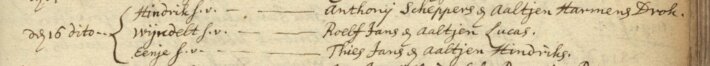 Hindrik s.v. — Anthony Scheppers & Aaltjen Harmens Drok.
den 16 dito Wijndelt s.v. — Roelf Jans & Aaltjen Lucas.
Eenje s.v. — Thies Jans & Aaltjen Hindriks.